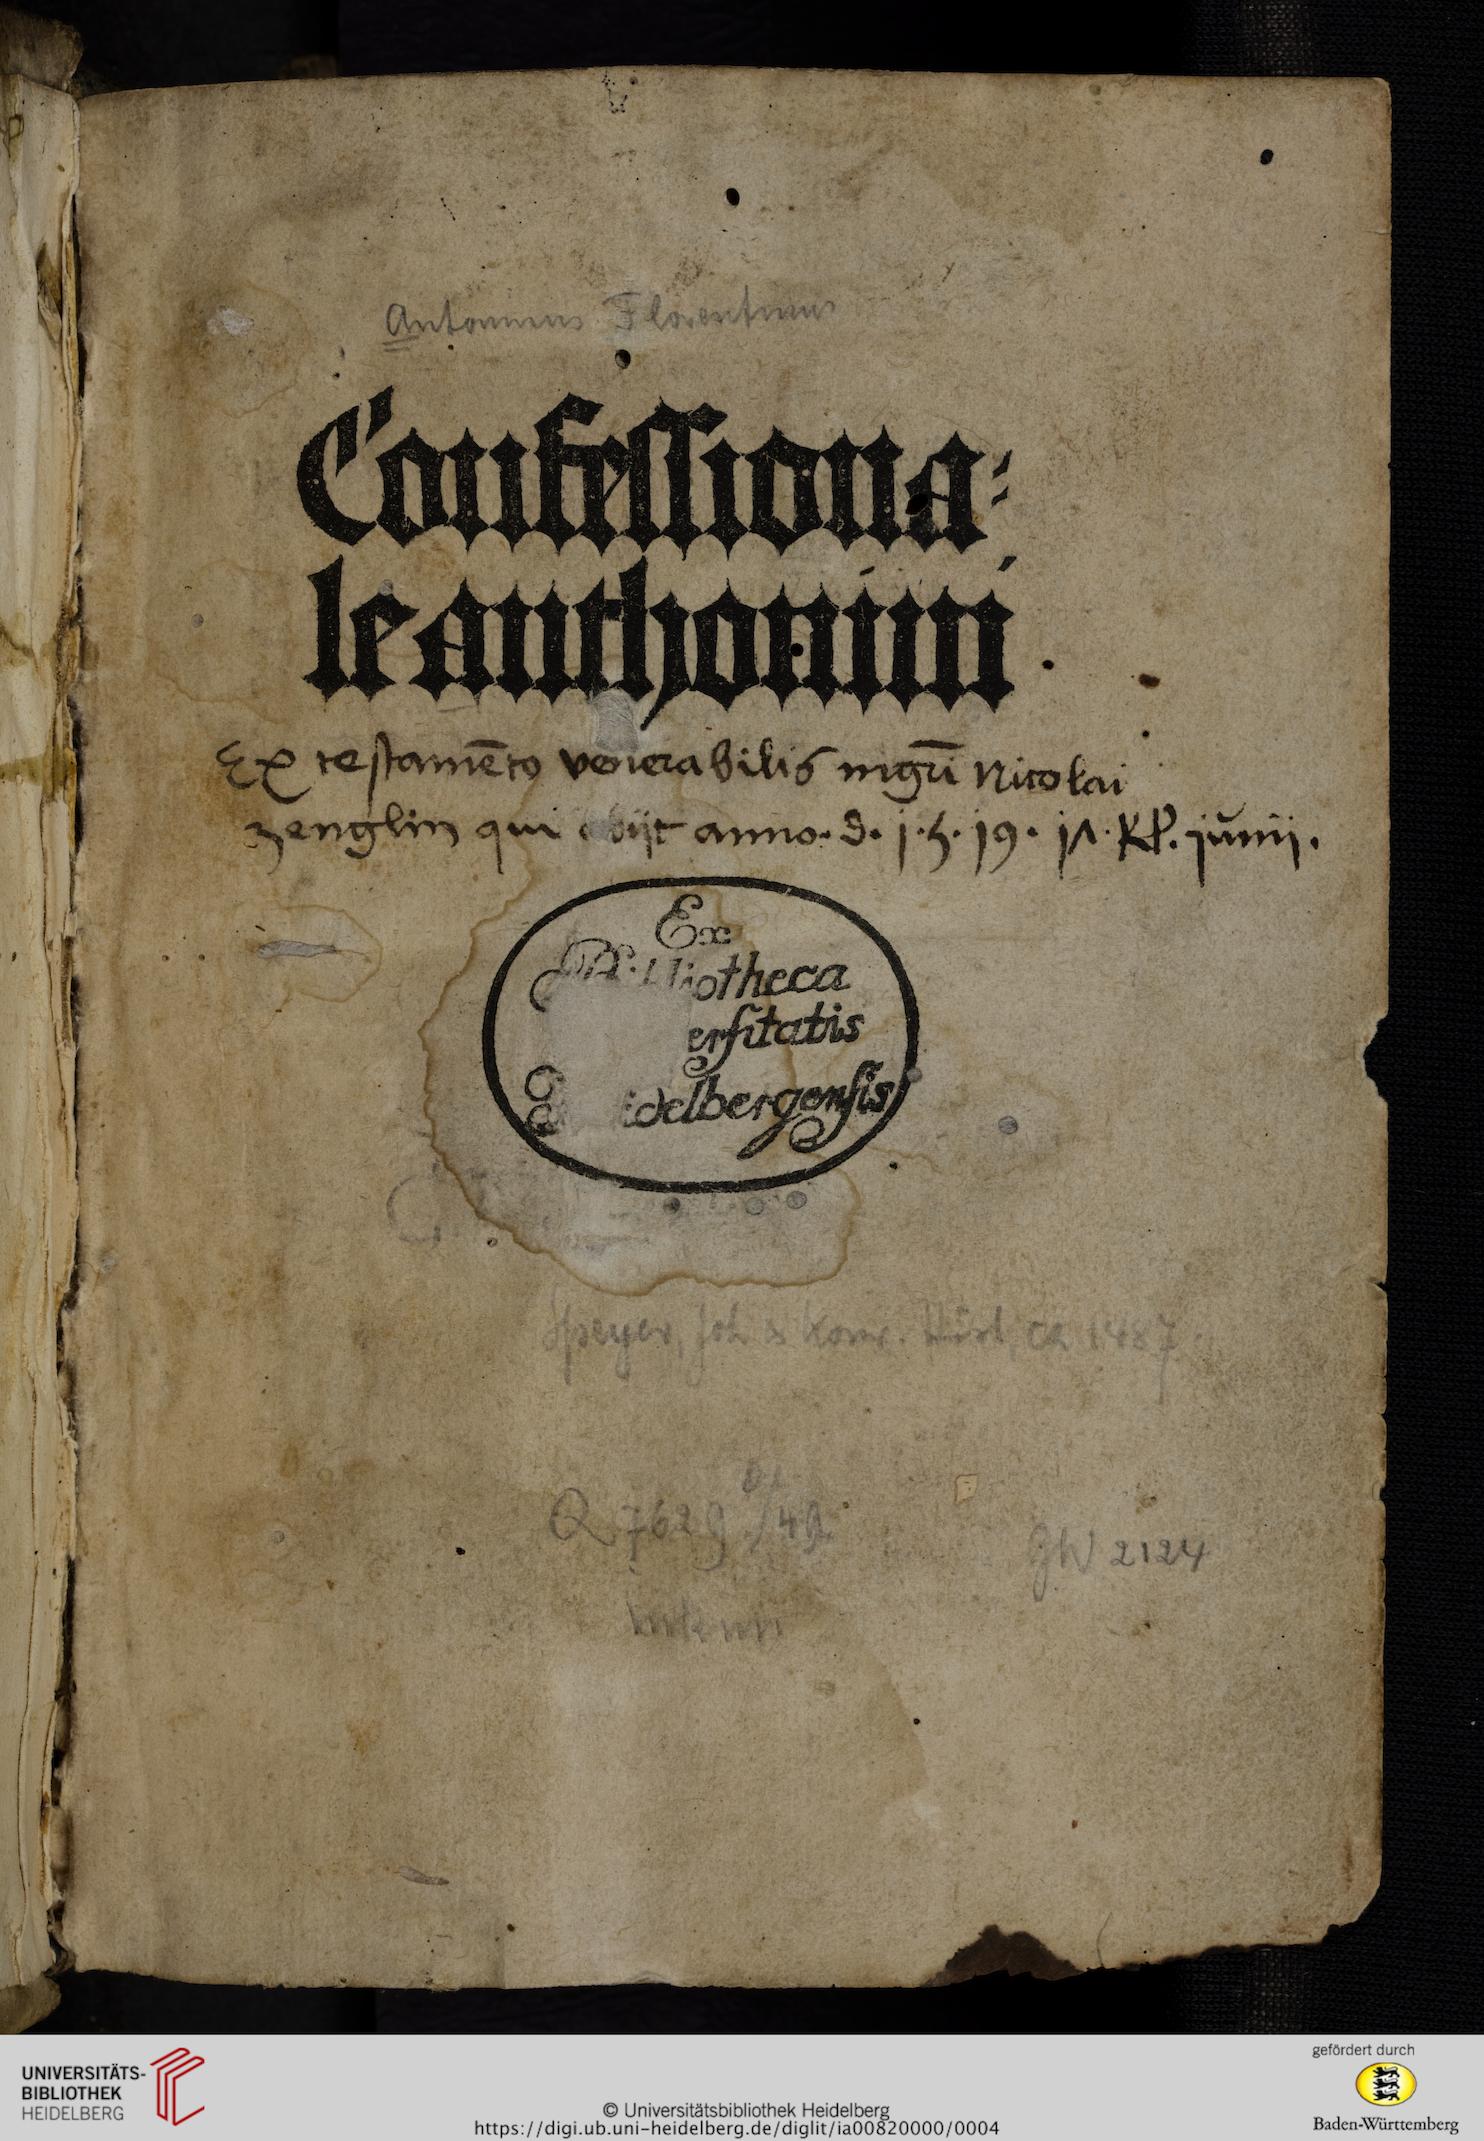 Antoninus Florentinus
Confessiona⸗
le anthonini
Ex testamēto venerabilis mgr̄i Nicolai
zenglin qui obijt anno. d. j.5.19. kl̄. junij.
Ex
Bibliotheca
ersitatis
idelbergensis
Speyer, Joh & Konr. Hist, ca 1487.
Q 7629
GW 2124
UNIVERSITÄTS-
BIBLIOTHEK
HEIDELBERG
© Universitätsbibliothek Heidelberg
https://digi.ub.uni-heidelberg.de/diglit/ia00820000/0004
gefördert durch
Baden-Württemberg